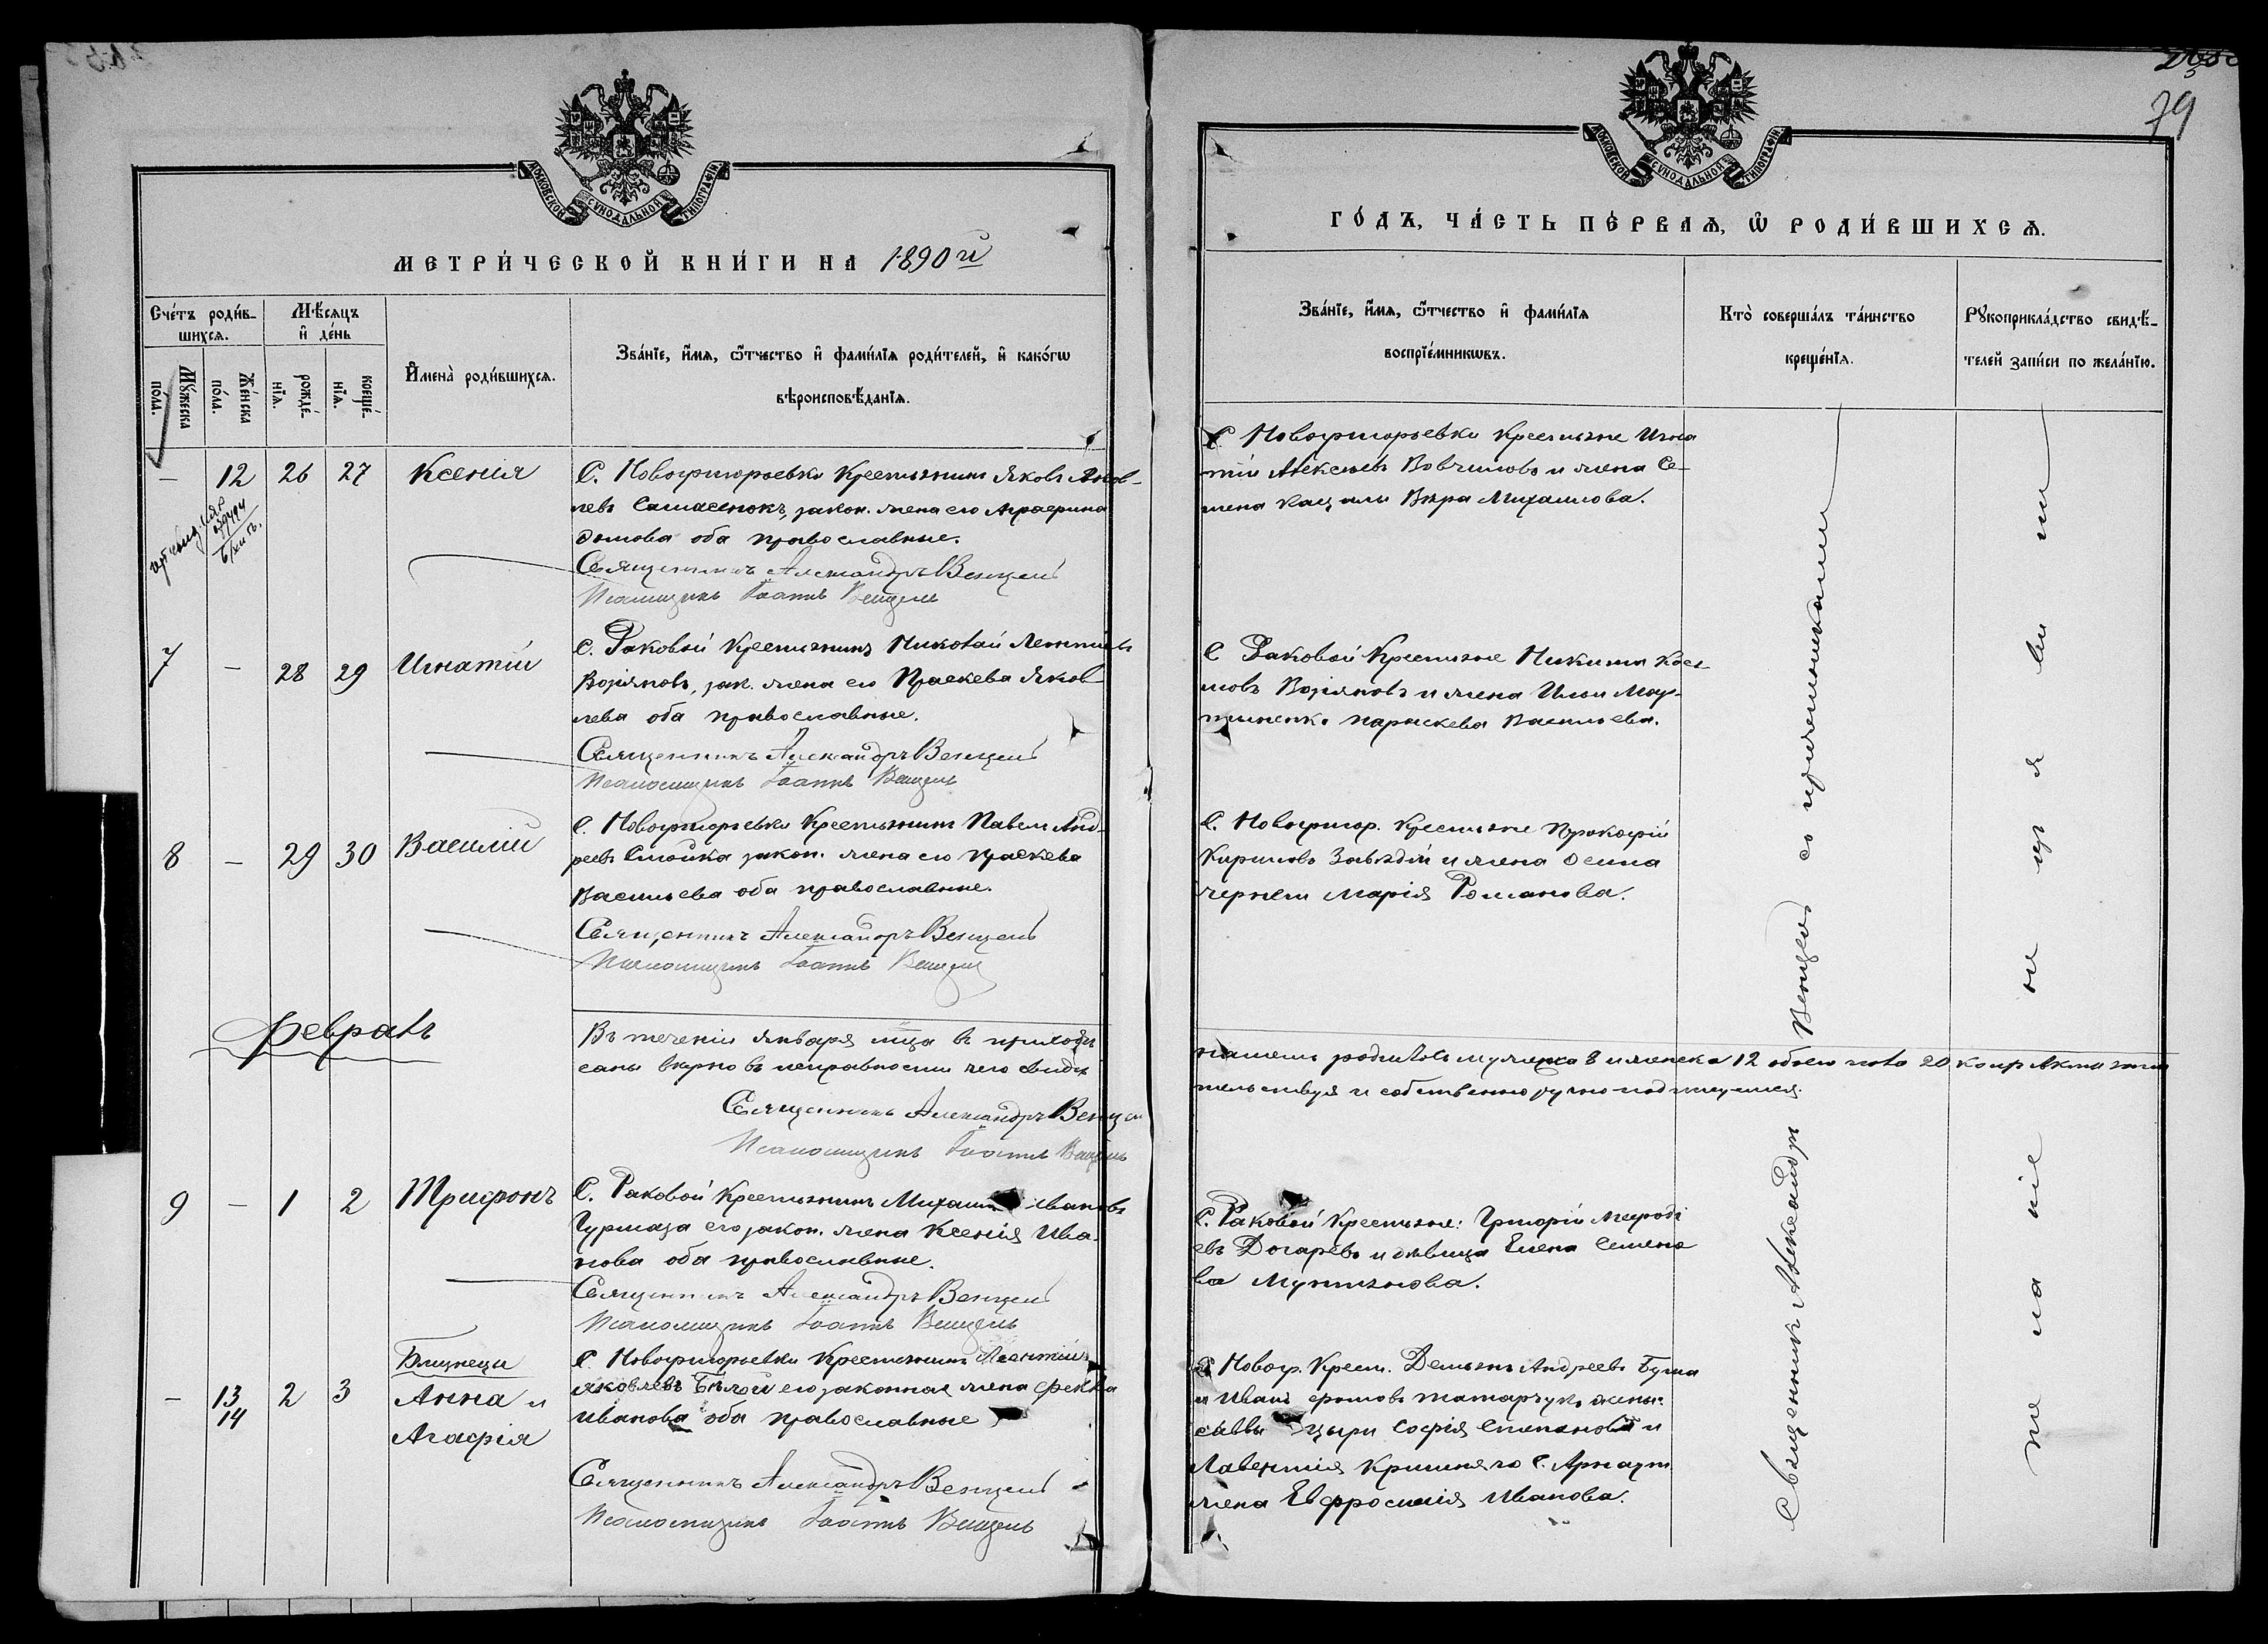 79
МОСКОВСКОЙ СѴНОДАЛЬНОЙ ТИПОГРАФІИ
МЕТРИ́ЧЕСКОЙ КНИ́ГИ НА 1890й
Сче́тъ роди́в-
шихсѧ.
Мꙋ́жеска
по́ла.
Же́нска
по́ла.
Мѣ́сѧцъ
и҆ де́нь
рожде́-
нїѧ.
креще́-
нїѧ.
И҆мена̀ роди́вшихсѧ.
Зва́нїе, и҆́мѧ, ѻ҆́тчество и҆ фами́лїѧ роди́телей, и҆ како́гѡ
вѣроисповѣ́данїѧ.
— 12 26 27 Ксенія
С. Новогригорьевки Крестьянинъ Яковъ Яков-
левъ закон. жена его Агрефина
оба православные.
Священникъ Александръ Венцель
Псаломщикъ Іоаннъ Венцель
7 — 28 29 Игнатій
С. Раковой Крестьянинъ Николай Леонтьевъ
Возіяновъ, зак. жена его Праскева Яков-
лева оба православные.
Священникъ Александръ Венцель
Псаломщикъ Іоаннъ Венцель
8 — 29 30 Василій
С. Новогригорьевки Крестьянинъ Павелъ Анд-
реевъ Стойка закон. жена его Праскева
Васильева оба православные.
Священникъ Александръ Венцель
Псаломщикъ Іоаннъ Венцель
Февраль
Въ теченіи Января мца въ приходѣ
саны вѣрно въ исправности чего свидѣ
Священникъ Александръ Венцель
Псаломщикъ Іоаннъ Венцель
9 — 1 2 Трифонъ
С. Раковой Крестьянинъ Михаилъ Ивановъ
Гурмаза его закон. жена Ксенія Ива-
нова оба православные.
Священникъ Александръ Венцель
Псаломщикъ Іоаннъ Венцель
Близнецы
— 13 14 2 3 Анна и
Агафія
С. Новогригорьевки Крестьянинъ Леонтій
Яковлевъ Бѣлой его законная жена Фекла
Иванова оба православные
Священникъ Александръ Венцель
Псаломщикъ Іоаннъ Венцель
МОСКОВСКОЙ СѴНОДАЛЬНОЙ ТИПОГРАФІИ
ГО́ДЪ, ЧА́СТЬ ПЕ́РВАѦ, Ѡ҆ РОДИ́ВШИХСѦ.
Зва́нїе, и҆́мѧ, ѻ҆́тчество и҆ фами́лїѧ
воспрїе́мникѡвъ.
Кто̀ соверша́лъ та́инство
креще́нїѧ.
Рꙋкоприкла́дство свидѣ́-
телей за́писи по жела́нїю.
С. Новогригорьевки Крестьяне Игна
тій Алексѣевъ и жена Се-
мена Вѣра Михайлова.
С Раковой Крестьяне Никита
Возіяновъ и жена Ильи Мар-
тиненко Параскева Васильева.
С. Новогригор. Крестьяне Прокофій
Кириловъ и жена Осипа
Чернеги Марія Романова.
нашемъ родилось мужеска 8 и женска 12 обоего пола 20 кои
тельствуя и собственноручно подписуемся.
С. Раковой Крестьяне: Григорій Мефоді
евъ Догаревъ и дѣвица Елена Семено
ва Мунтянова.
С Новогр. Крест. Демьянъ Андреевъ Буша
и Иванъ Татарчукъ жены:
Саввы Софія Степанова и
Лаврентія С. Арнаут.
жена Евфросинія Иванова.
Священникъ Александръ Венцель со причетниками
не изъявили
желаніе